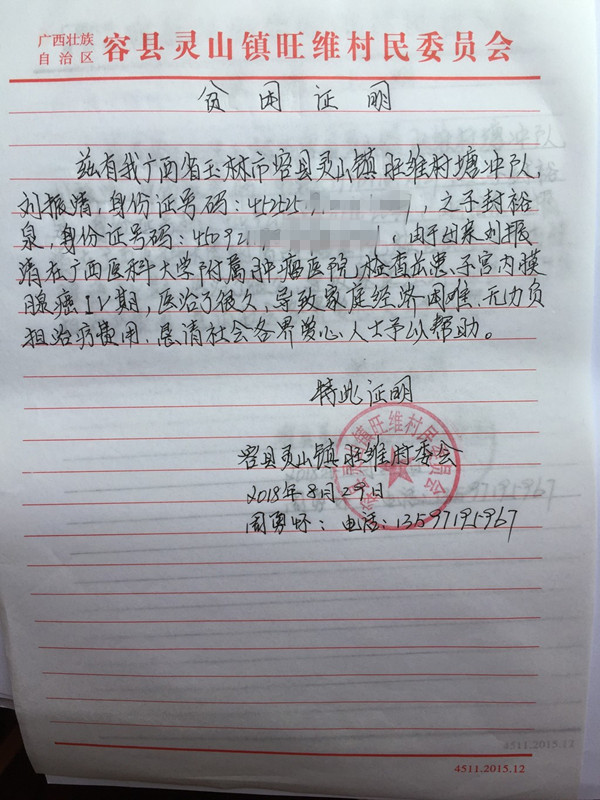 广西壮族
自治区 容县灵山镇旺维村民委员会
贫困证明
兹有我广西省玉林市容县灵山镇旺维村塘冲队,
刘振清,身份证号码:452525,之子封裕
泉,身份证号码:45092,由于母亲刘振
清在广西医科大学附属肿瘤医院,检查出患,子宫内膜
腺癌IV期,医治了很久,导致家庭经济困难,无力负
担治疗费用,恳请社会各界爱心人士予以帮助。
特此证明
容县灵山镇旺维村委会
2018年8月29日
周勇怀:电话:13597195967
容县灵山镇旺维村民委员会
4511.2015.12
4511.2015.12